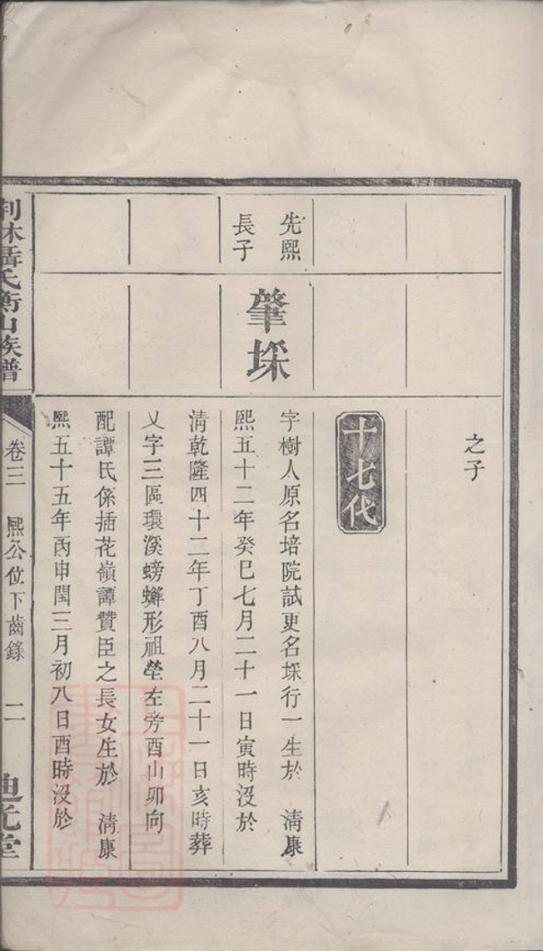 之子
十七代
先熙
長子
肇埰
字樹人原名培院試更名埰行一生於 清康
熙五十二年癸巳七月二十一日寅時沒於
清乾隆四十二年丁酉八月二十一日亥時葬
乂字三區環溪螃蠏形祖塋左旁酉山卯向
配譚氏係插花嶺譚贊臣之長女生於 清康
熙五十五年丙申閏三月初八日酉時沒於
荆林聶氏衡山族譜
卷三 熙公位下齒錄 二